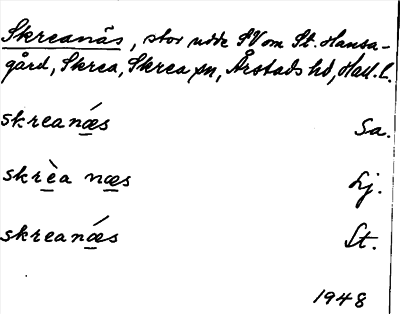 Skreanäs, stor udde SV om St. Hansa-
gård, Skrea, Skrea sn, Årstads hd, Hall. l.
skreanǽs Sa.
skrèa næs Lj.
skreanǽs St.
1948